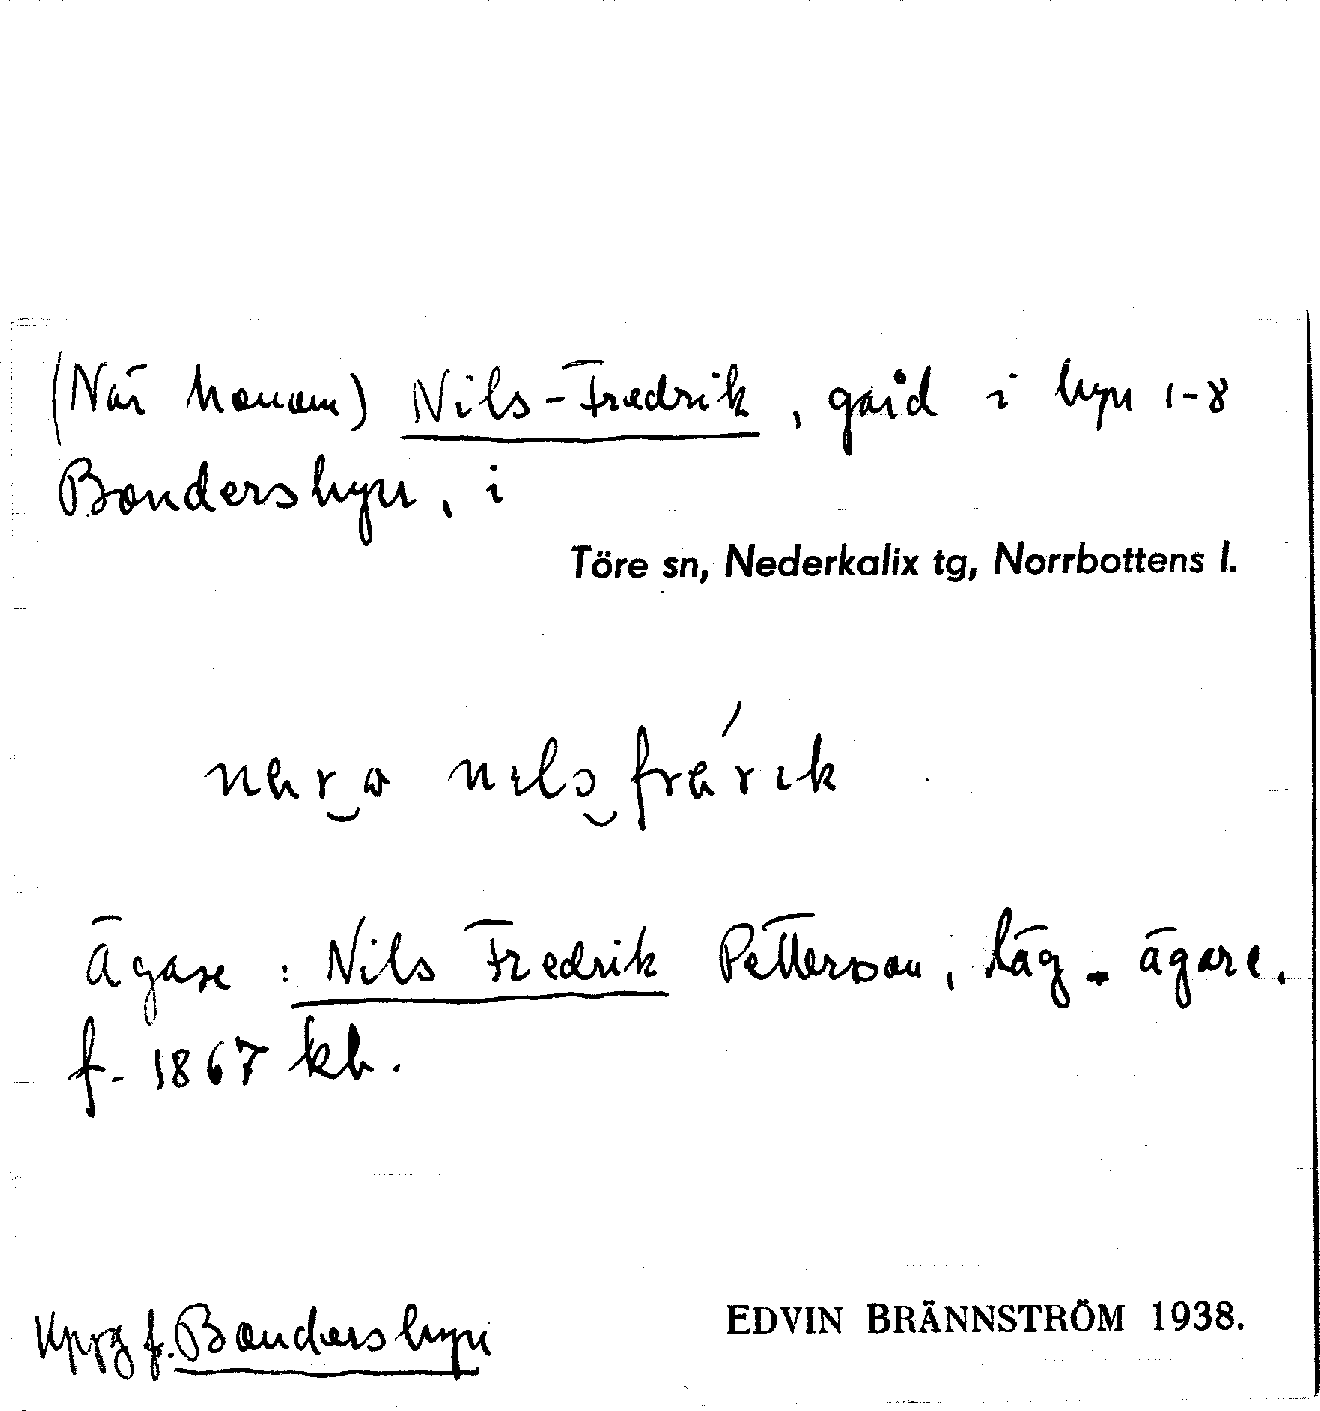 (När honom) Nils-Fredrik, gård i byn 1-8
Bondersbyn, i
Töre sn, Nederkalix tg, Norrbottens l.
Ägare: Nils Fredrik Petterson, läg. ägare.
f. 1867 kb.
Uppg f. Bondersbyn
EDVIN BRÄNNSTRÖM 1938.